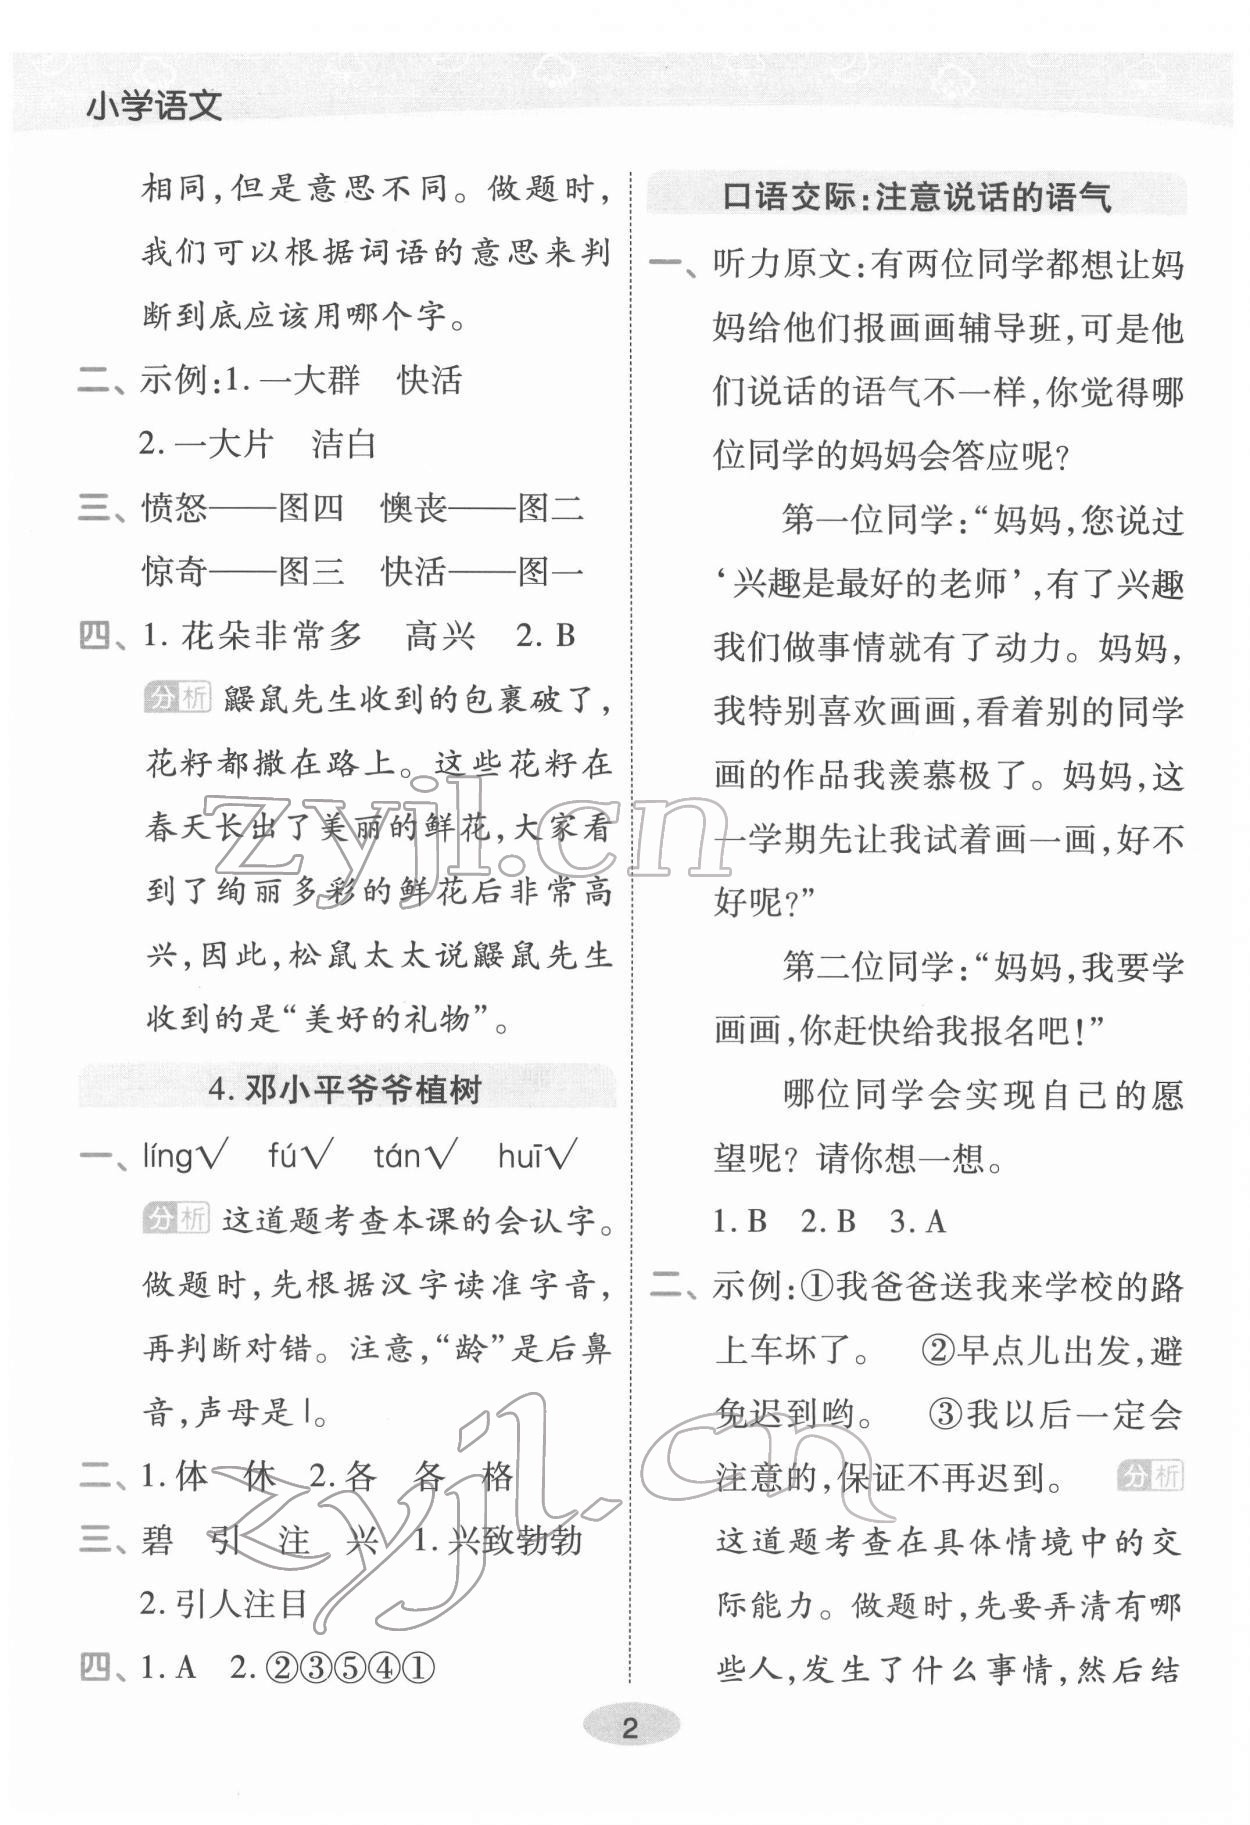 小学语文
相同,但是意思不同。做题时,
我们可以根据词语的意思来判
断到底应该用哪个字。
二、示例:1. 一大群 快活
2. 一大片 洁白
三、愤怒——图四 懊丧——图二
惊奇——图三 快活——图一
四、1. 花朵非常多 高兴 2. B
分析 鼹鼠先生收到的包裹破了,
花籽都撒在路上。这些花籽在
春天长出了美丽的鲜花,大家看
到了绚丽多彩的鲜花后非常高
兴,因此,松鼠太太说鼹鼠先生
收到的是“美好的礼物”。
4. 邓小平爷爷植树
一、líng√ fú√ tán√ huī√
分析 这道题考查本课的会认字。
做题时,先根据汉字读准字音,
再判断对错。注意,“龄”是后鼻
音,声母是l。
二、1. 体 休 2. 各 各 格
三、碧 引 注 兴 1. 兴致勃勃
2. 引人注目
四、1. A 2. ②③⑤④①
口语交际:注意说话的语气
一、听力原文:有两位同学都想让妈
妈给他们报画画辅导班,可是他
们说话的语气不一样,你觉得哪
位同学的妈妈会答应呢?
第一位同学:“妈妈,您说过
‘兴趣是最好的老师’,有了兴趣
我们做事情就有了动力。妈妈,
我特别喜欢画画,看着别的同学
画的作品我羡慕极了。妈妈,这
一学期先让我试着画一画,好不
好呢?”
第二位同学:“妈妈,我要学
画画,你赶快给我报名吧!”
哪位同学会实现自己的愿
望呢? 请你想一想。
1. B 2. B 3. A
二、示例:①我爸爸送我来学校的路
上车坏了。 ②早点儿出发,避
免迟到哟。 ③我以后一定会
注意的,保证不再迟到。 分析
这道题考查在具体情境中的交
际能力。做题时,先要弄清有哪
些人,发生了什么事情,然后结
2
zyjl.cn
zyjl.cn